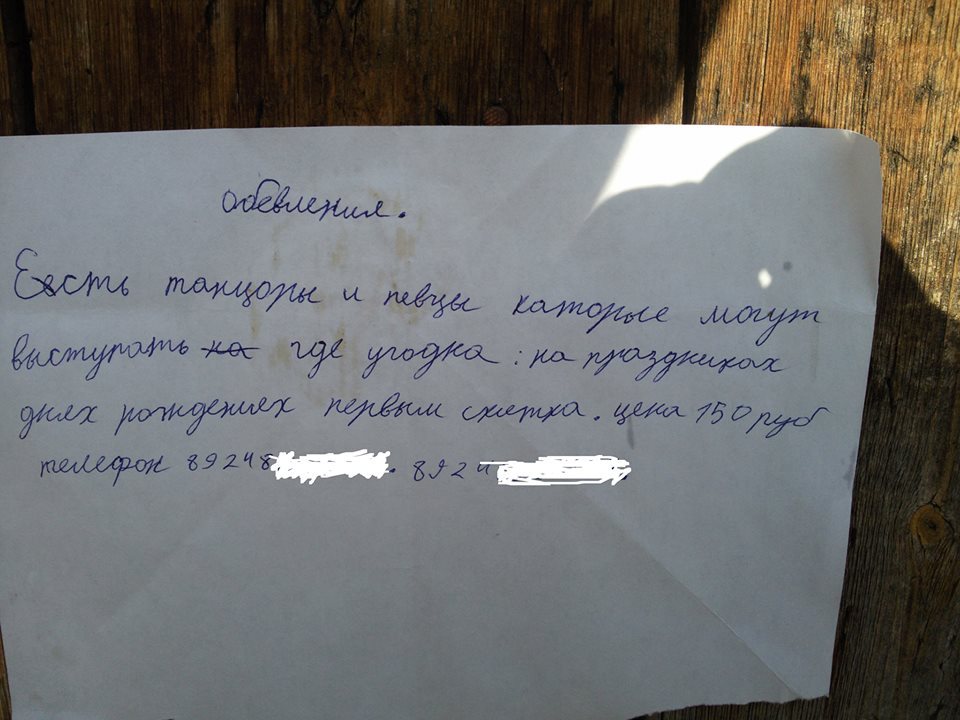 обевления.
Есть танцоры и певцы каторые могут
выступать на где угодна: на праздниках
днях рождениях первым скитка. цена 150 руб
телефон 89248 . 8924